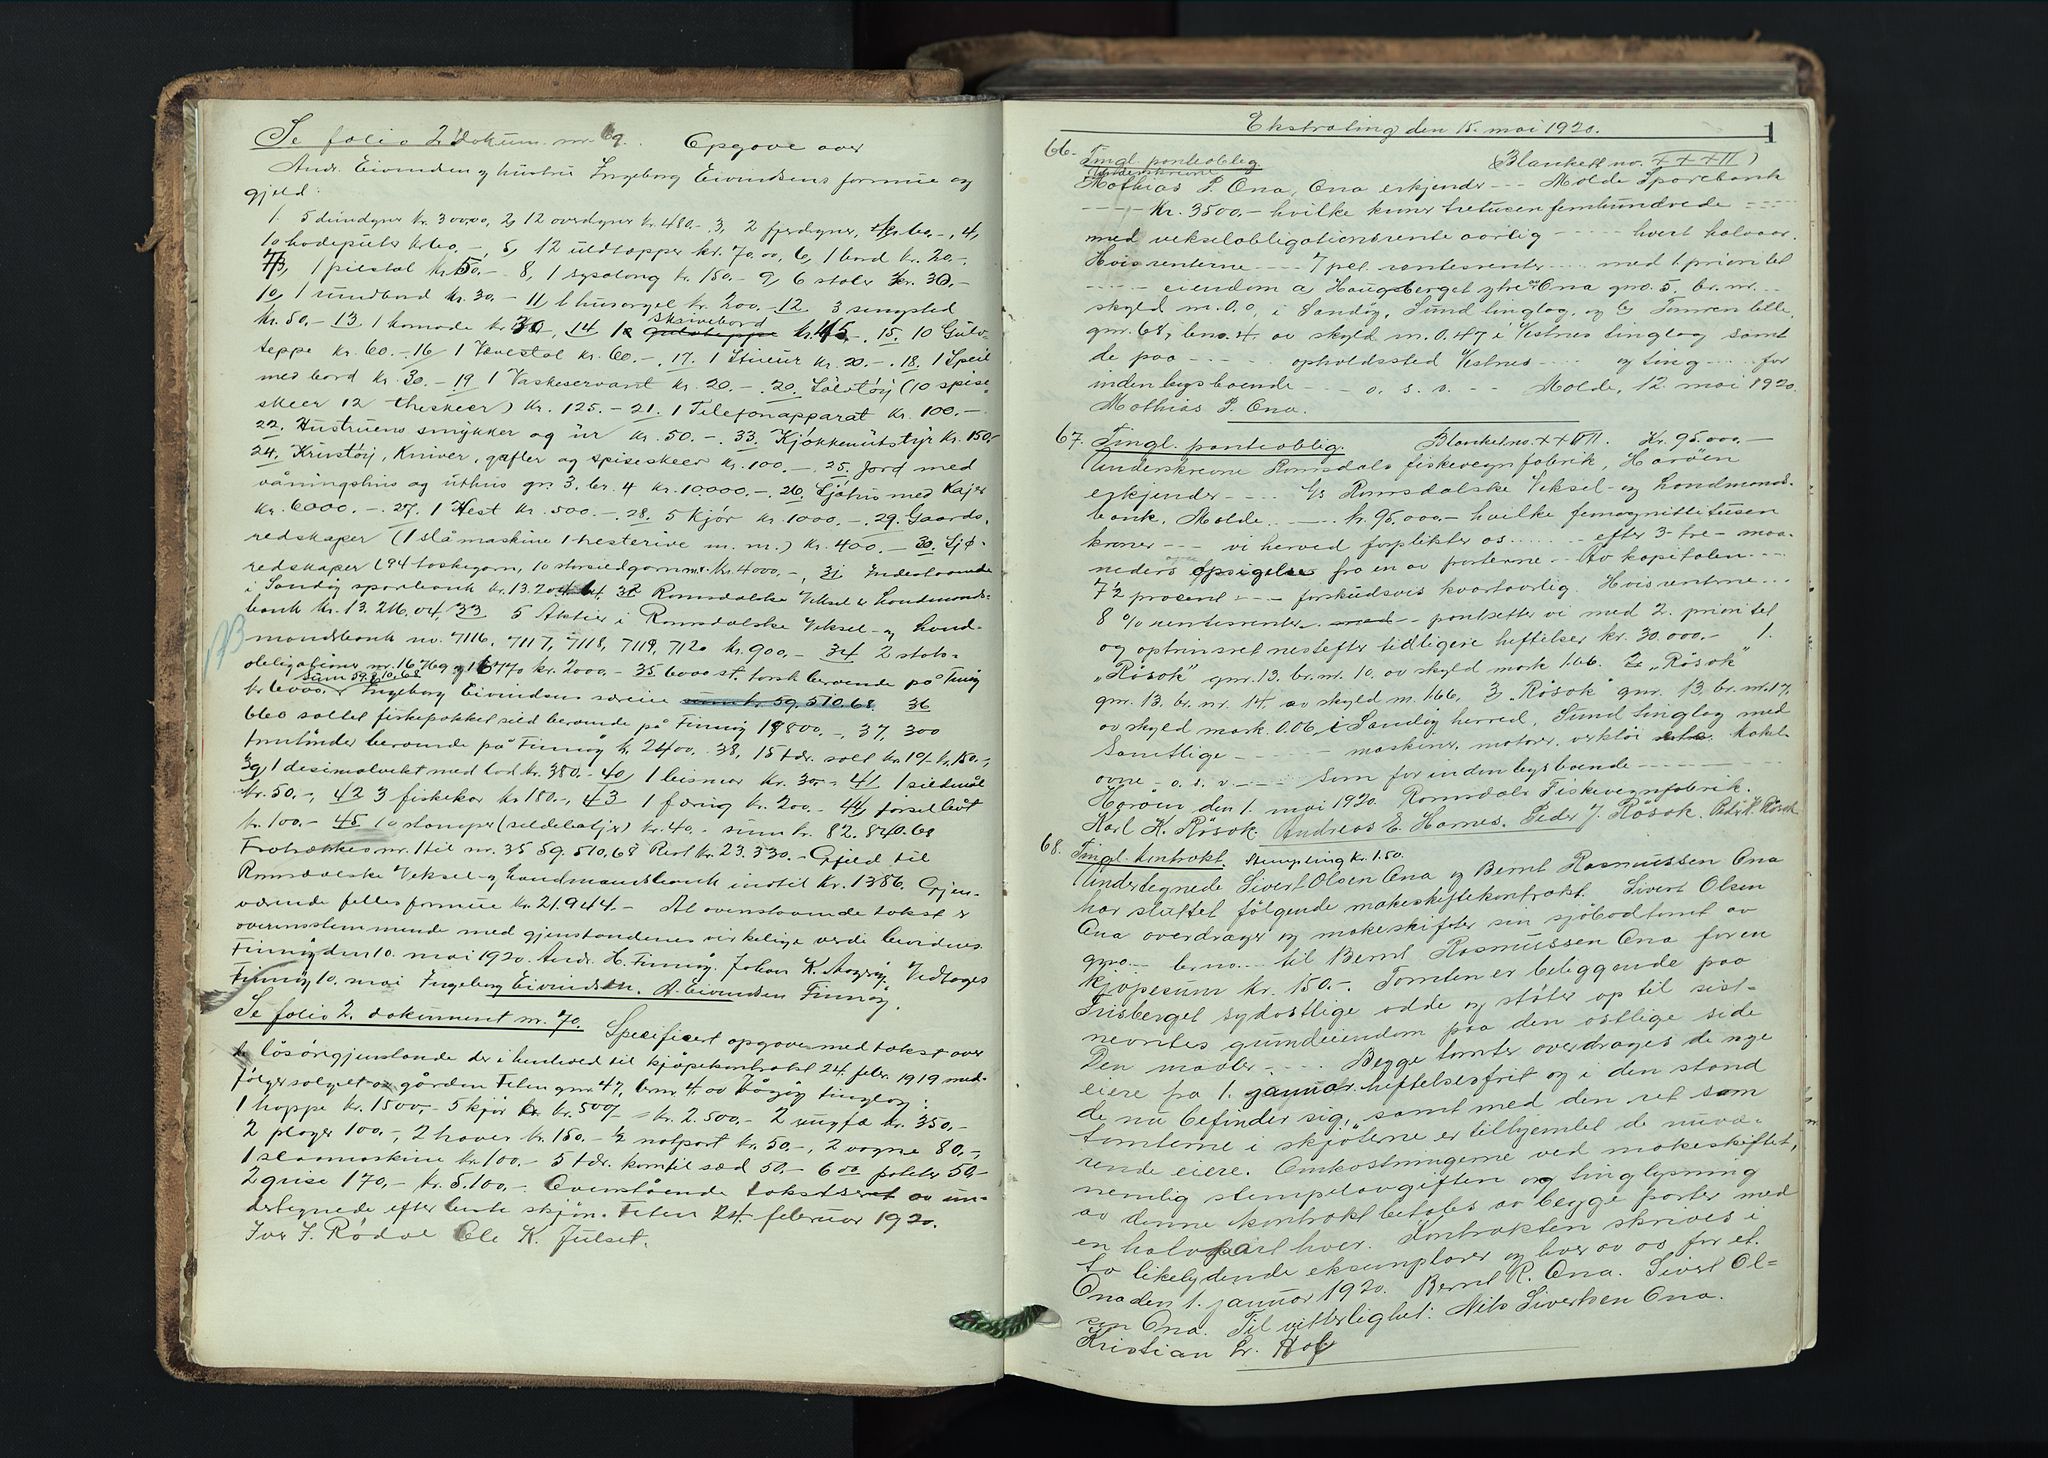 Se folio 2 dokum. nr. 69. Opgave over
Andr. Eivindsen og hustru Ingeborg Eivindsens formue og
gjeld:
1. 5 dundyner kr. 300,00, 2, 12 overdyner kr. 480.- 3, 2 fjerdyner, kr. 60.-, 4,
10 hodeputer kr. 60.-, 5, 12 uldtæpper kr. 70.00, 6, 1 bord kr. 20.-,
7, 1 pilstol kr. 50.- 8, 1 sysalong kr. 150.- 9, 6 stoler kr. 30.-
10, 1 rundbord kr. 30.- 11, 1 husorgel kr. 200.- 12 3 sengsted
kr. 50.- 13 1 komode kr. 30, 14 1 skrivebord kr. 45.-. 15. 10 Gulv-
teppe kr. 60.- 16 1 Vævestol kr. 60.-. 17. 1 Stueur kr. 20.-. 18. 1 Speil
med bord kr. 30.- 19 1 Vaskeservant kr. 20.-. 20. Sølvtøy (10 spise-
skeer 12 theskeer) kr. 125.- 21. 1 Telefonapparat kr. 100.-
22. Hustruens smykker og ur kr. 50.-. 33. Kjøkkenutstyr kr. 150.-
24. Krustøj, Kniver, gafler og spiseskeer kr. 100.-. 25. Jord med
våningshus og uthus gn. 3. br. 4 kr. 10000.-. 26. Sjøhus med Kajer
kr. 6000.-. 27. 1 Hest kr. 500.-. 28. 5 Kjør kr. 1000.-. 29. Gaards-
redskaper (1 slåmaskine 1 hesterive m. m.) kr. 400.- 30. Sjø-
redskaper (94 torskegarn, 10 storsildgarn m.m. kr. 4000.-, 31 Indestaaende
i Sandøy sparebank kr. 13.204. 32 Romsdalske Veksel & Landmands-
bank kr. 13.216,04, 33 5 Aktier i Romsdalske Veksel- og Land-
mandsbank no. 7116, 7117, 7118, 7119, 7120 kr. 900.- 34 2 stats-
obligationer nr. 16769 og 16770 kr. 2000.- 35 6000 st. torsk beroende på Finnøy
kr. 6000. Sum 59.510.68 Ingeborg Eivindsens særeie sum kr. 59.510.68 36
660 saltet fiskepakket sild beroende på Finnøy 19800.-, 37, 300
tomtønder beroende på Finnøy kr. 2400. 38, 15 tdr. salt kr. 10/- kr. 150.-,
39 1 desimalvekt med lod kr. 350.- 40, 1 bismer kr. 30.- 41 1 sildmål
kr. 50.-, 42 3 fiskekar kr. 150.-, 43 1 færing kr. 200.- 44, forselbåt
kr. 100.- 45 10 stamper (sildebaljer) kr. 40.- sum kr. 82.840.68
Fratrækkes nr. 1 til nr. 35 59.510,68 Rest kr. 23.330.- Gjæld til
Romsdalske Veksel- og Landmandsbank indtil kr. 1386. Gjen-
værende fellesformue kr. 21.944.- At ovenstaaende takst er
overensstemmende med gjenstandenes virkelige værde bevidnes
Finnøy den 10. mai 1920. Andr. H. Finnøy. Johan K. Vedtages
Finnøy 10. mai Ingeborg Eivindsen. A. Eivindsen Finnøy.
Se folio 2. dokument nr. 70. Specificert opgave med takst over
de løsøregjenstande der i henhold til kjøpekontrakt 24. febr. 1919 med-
følger salget av gården Teten gnr. 47, bnr. 4, av Vågøy tinglag:
1 hoppe kr. 1500,- 5 kjør kr. 500/- kr. 2.500.- 2 ungfæ kr. 350,-
2 ploger 100.-, 2 harver kr. 150.- ½ notpart kr. 50.-, 2 vogne 80.-,
1 slaamaskine kr. 100.- 5 tdr. korn til sæd 50.- 600 poteter 50-
2 grise 170.- kr. 5.100.- Ovenstående takst er av un-
dertegnede efter bedste skjøn. Teten 24. februar 1920.
Iver I. Rødal Ole K. Julset.
Ekstrating den 15. mai 1920. 1
66. Tingl. panteoblig. (Blankett no. XXXII)
Underskrevne
Mathias P. Ona, Ona erkjender --- Molde Sparebank
---- Kr. 3500.- hvilke kroner tretusen femhundrede ----
med vekselobligationsrente aarlig ---- hvert halvaar.
Hvis renterne ---- 7 pct. rentesrenter ---- med 1. prioritet
---- eiendom a Haugsberget ytre av Ona gno. 5, br. nr. ----
skyld m. 0,0, i Sandøy, Sund tinglag, og b) Tomren lille,
gnr. 68, bno. 4. av skyld m. 0.47 i Vestnes tinglag samt
de paa ---- opholdssted Vestnes ---- og ting ---- for
inden bygsboende ---- o. s. v. -- Molde, 12. mai 1920.
Mathias P. Ona.
67. Tingl. panteoblig. Blanket no. XXVII. Kr. 95.000.-
Underskrevne Romsdals fiskevegnfabrik, Harøen
erkjender ---- Romsdalske Veksel- og Landmands-
bank, Molde. ---- kr. 95.000.- hvilke femognittitusen
kroner --- vi herved forplikter os ---- efter 3- tre - maa-
neders opsigelse fra en av parterne. Av kapitalen ---
7½ procent --- forskudsvis kvartaarlig. Hvis renterne ---
8 % rentesrenter. pantsætter vi med 2. prioritet
og optrinsret næstefter tidligere heftelser kr. 30.000.- 1.
"Røsok" gnr. 13. br. nr. 10. av skyld mark 1.06. 2. "Røsok"
gnr. 13. br. nr. 14. av skyld m. 1.66, 3 "Røsok" gnr. 13, br. nr. 17,
av skyld mark. 0.06, i Sandøy herred, Sund tinglag med
samtlige ---- maskiner, motorer, verktøi Kakel-
ovne - o. s. v. ---- Som for inden bygsboende ----
Harøen den 1. mai 1920. Romsdals Fiskevegnfabrik.
Karl K. Røsok. Andreas E. Harnes. Peder J. Røsok. Peder K. Røsok
68. Tingl. kontrakt. Stempling kr. 1.50.
Undertegnede Sivert Olsen Ona og Bernt Rasmussen Ona
har sluttet følgende makeskiftekontrakt. Sivert Olsen
Ona overdrager og makeskifter sin sjøbodtomt av
gno. - bno. - til Bernt Rasmussen Ona for en
kjøpesum kr. 150.-. Tomten er beliggende paa
Trisberget sydostlige odde og støter op til sist-
nevntes grundeiendom paa den østlige side
Den maaler ---- Begge tomter overdrages de nye
eiere fra 1. januar heftelsesfrit og i den stand
de nu befinder sig, samt med den ret som
tomterne i skjøterne er tilhjemlet de nuvæ-
rende eiere. Omkostningerne ved makeskiftet,
nemlig stempelavgiften og tinglysning
av denne kontrakt betales av begge parter med
en halvpart hver. Kontrakten skrives i
to likelydende eksemplarer og hver av os for et.
Ona den 1. januar 1920. Bernt R. Ona. Sivert Ol-
sen Ona. Til vitterlighet: Nils Sivertsen Ona.
Kristian Hof